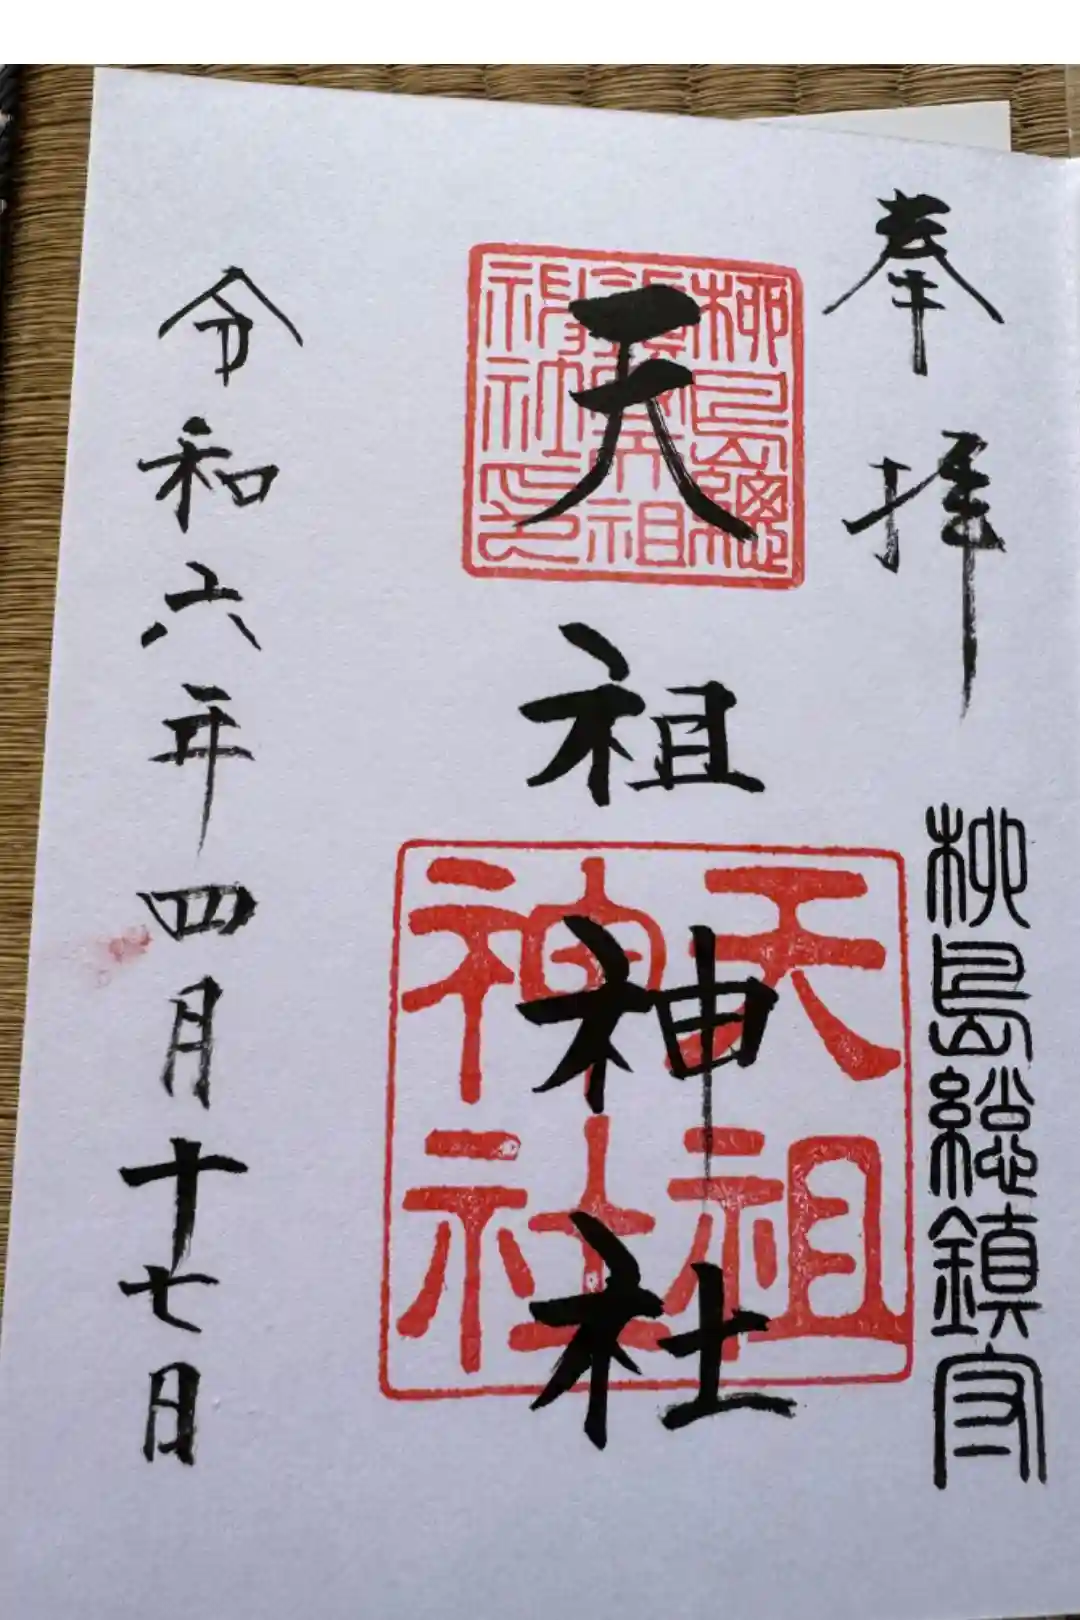 奉拝
柳島総鎮守
柳島總鎮守天祖神社之印
天祖神社
天祖神社
令和六年四月十七日